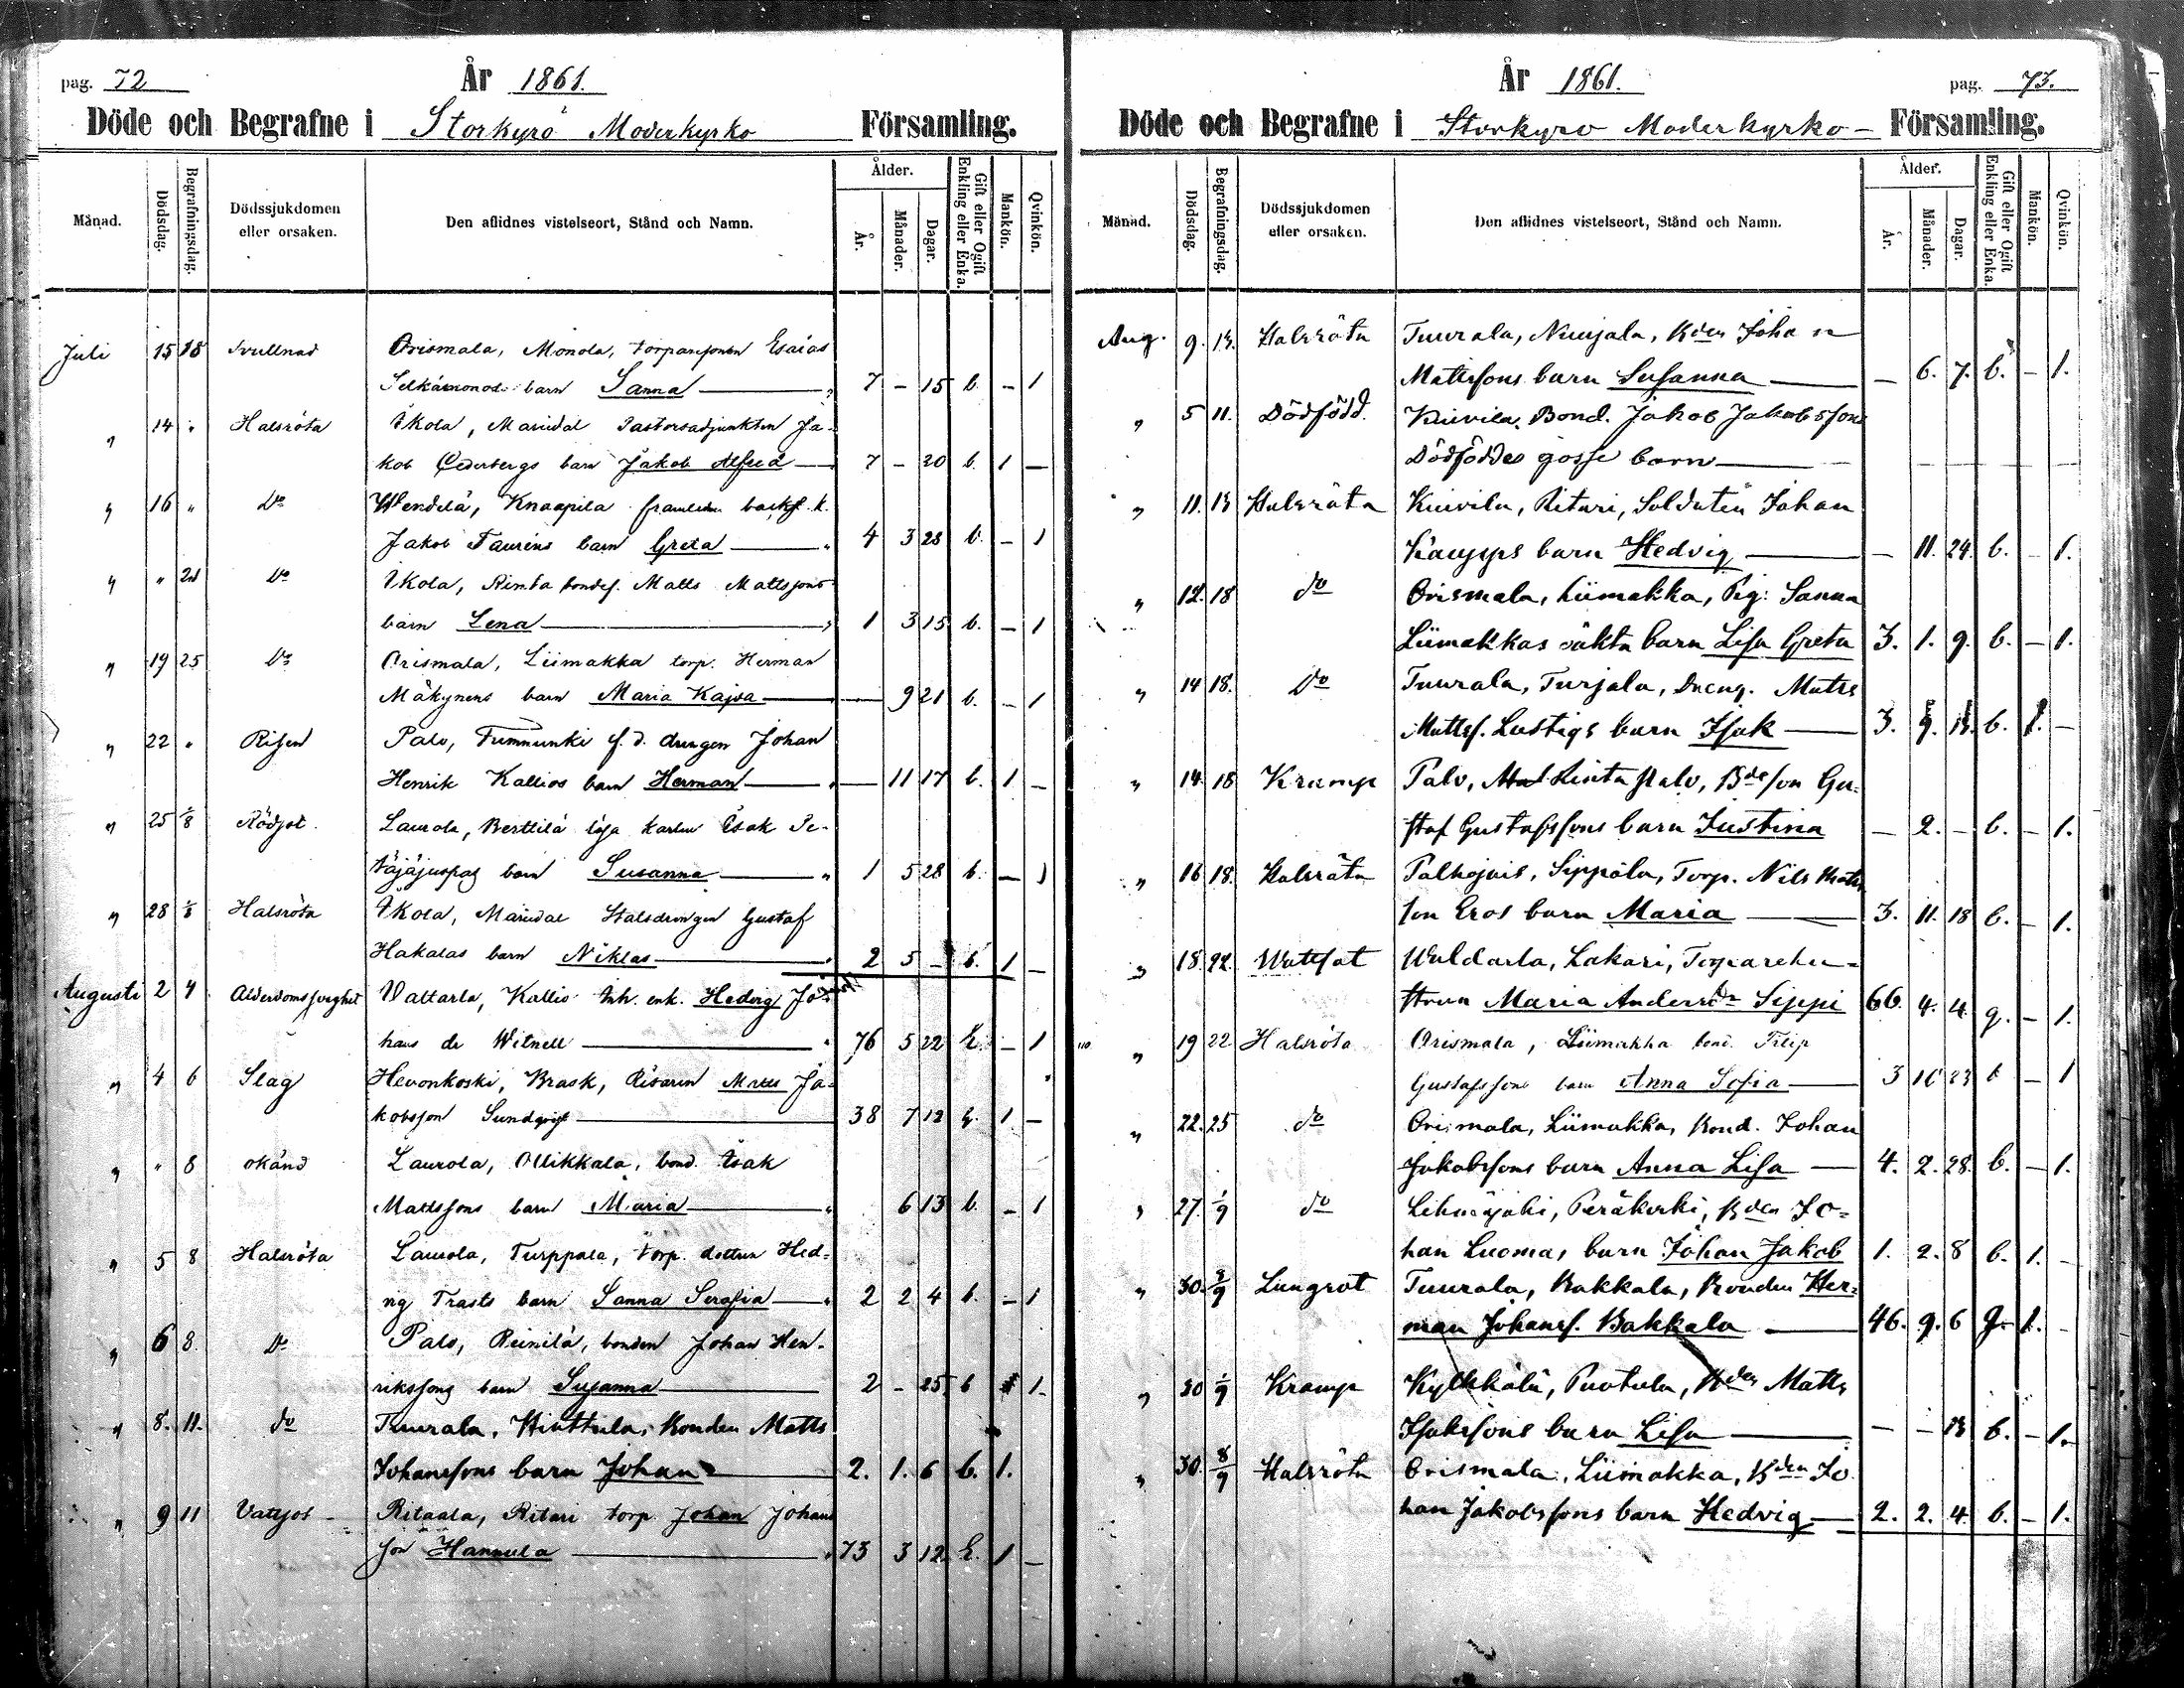 pag. 72
År 1861.
Döde och Begrafne i Storkyrö Moderkyrko Församling.
Månad. Dödsdag. Begrafningsdag. Dödssjukdomen eller orsaken. Den aflidnes vistelseort, Stånd och Namn. Ålder. År. Månader. Dagar. Gift eller Ogift Enkling eller Enka. Mankön. Qvinkön.
Juli 15 18 Svullnad Orismala, Monola, torparesonen Esaias
barn Sanna 7 - 15 b. - 1
" 14 " Halsröta Ikola, Mariedal Pastorsadjunkten Ja-
kob Cederbergs barn Jakob Alfred 7 - 20 b. 1 -
" 16 " Do Wendelä, Knaapila framlidne backst. k.
Jakob Taurens barn Greta 4 3 28 b. - 1
" " 21 Do Ikola, Rinta bondes. Matts Mattssons
barn Lena 1 3 15 b. - 1
" 19 25 Do Orismala, Liimakka torp. Herman
Mäkynens barn Maria Kajsa - 9 21 b. - 1
" 22 " Risen Palo, f. d. drengen Johan
Henrik Kallios barn Herman - 11 17 b. 1 -
" 25 1/8 Rödsot Laurola, Berttilä lösa karlen Isak Pe-
barn Susanna 1 5 28 b. - 1
" 28 1/8 Halsröta Ikola, Mariedal Stalsdrengen Gustaf
Hakalas barn Niklas 2 5 - b. 1 -
Augusti 2 4 Alderdomssvaghet Valtarla, Kallio Inh. enk. Hedvig Jo-
hans dr Witnell 76 5 22 E. - 1
" 4 6 Slag Hevonkoski, Brask, Matts Ja-
kobsson Sundqvist 38 7 12 g. 1 -
" " 8 okänd Laurola, Ollikkala, bond. Isak
Mattssons barn Maria 6 13 b. - 1
" 5 8 Halsröta Laurola, Turppala, torp. dottren Hed-
vig Trasts barn Sanna Serafia 2 2 4 b. - 1
" 6 8. Do Palo, Reinilä, bonden Johan Hen-
rikssons barn Susanna 2 - 25 b 1.
" 8. 11. do Tuurala, Hiuttula, Bonden Matts
Johanssons barn Johan 2. 1. 6 b. 1.
" 9 11 Vattsot Ritaala, Ritari torp. Johan Johans
son Hannula 73 3 12 E. 1 -
År 1861.
pag. 73.
Döde och Begrafne i Storkyro Moderkyrko- Församling.
Månad. Dödsdag. Begrafningsdag. Dödssjukdomen eller orsaken. Den aflidnes vistelseort, Stånd och Namn. Ålder. År. Månader. Dagar. Gift eller Ogift Enkling eller Enka. Mankön. Qvinkön.
Aug. 9. 13. Halsröta Tuurala, Nuijala, Bden Johan
Mattssons barn Susanna - 6. 7. b. - 1.
" 5 11. Dödfödd. Kuivila, Bond. Jakob Jakobssons
Dödföddes gosse barn
" 11. 13 Halsröta Kuivila, Ritari, Soldaten Johan
Kaupps barn Hedvig - 11. 24. b. - 1.
" 12. 18 do Orismala, Liimakka, Pig: Sanna
Liimakkas oäkta barn Lisa Greta 3. 1. 9. b. - 1.
" 14 18. Do Tuurala, Turjala, Dreng. Matts
Mattss. Lustigs barn Isak 3. 9. 13. b. 1. -
" 14. 18 Kramp Palo, Lintasalo, Bdeson Gu-
staf Gustafssons barn Justina - 2. - b. - 1.
" 16 18. Halsröta Palhojais, Sippola, Torp. Nils Mats
son Eros barn Maria 3. 11. 18 b. - 1.
" 18. 22. Wattsot Waldarla, Lakari, Torparehu-
strun Maria Andersdr Sippi 66. 4. 4. g. - 1.
" 19 22 Halsröta Orismala, Liimakka bond. Filip
Gustafssons barn Anna Sofia 3 10 23 b - 1
" 22. 25 do Orismala, Liimakka, Bond. Johan
Jakobssons barn Anna Lisa 4. 2. 28. b. - 1.
" 27. 1/9 do Lehmäjoki, Peräkoski, Bden Jo-
han Luomas barn Johan Jakob 1. 2. 8 b. 1. -
" 30. 8/9 Lungsot Tuurala, Bakkala, Bonden Her-
man Johanss. Bakkala 46. 9. 6 g. 1. -
" 30 1/9 Kramp Kylkkälä, Puotula, Bden Matts
Isakssons barn Lisa - - 13 b. - 1.
" 30. 8/9 Halsröta Orismala, Liimakka, Bden Jo
han Jakobssons barn Hedvig 2. 2. 4. b. - 1.